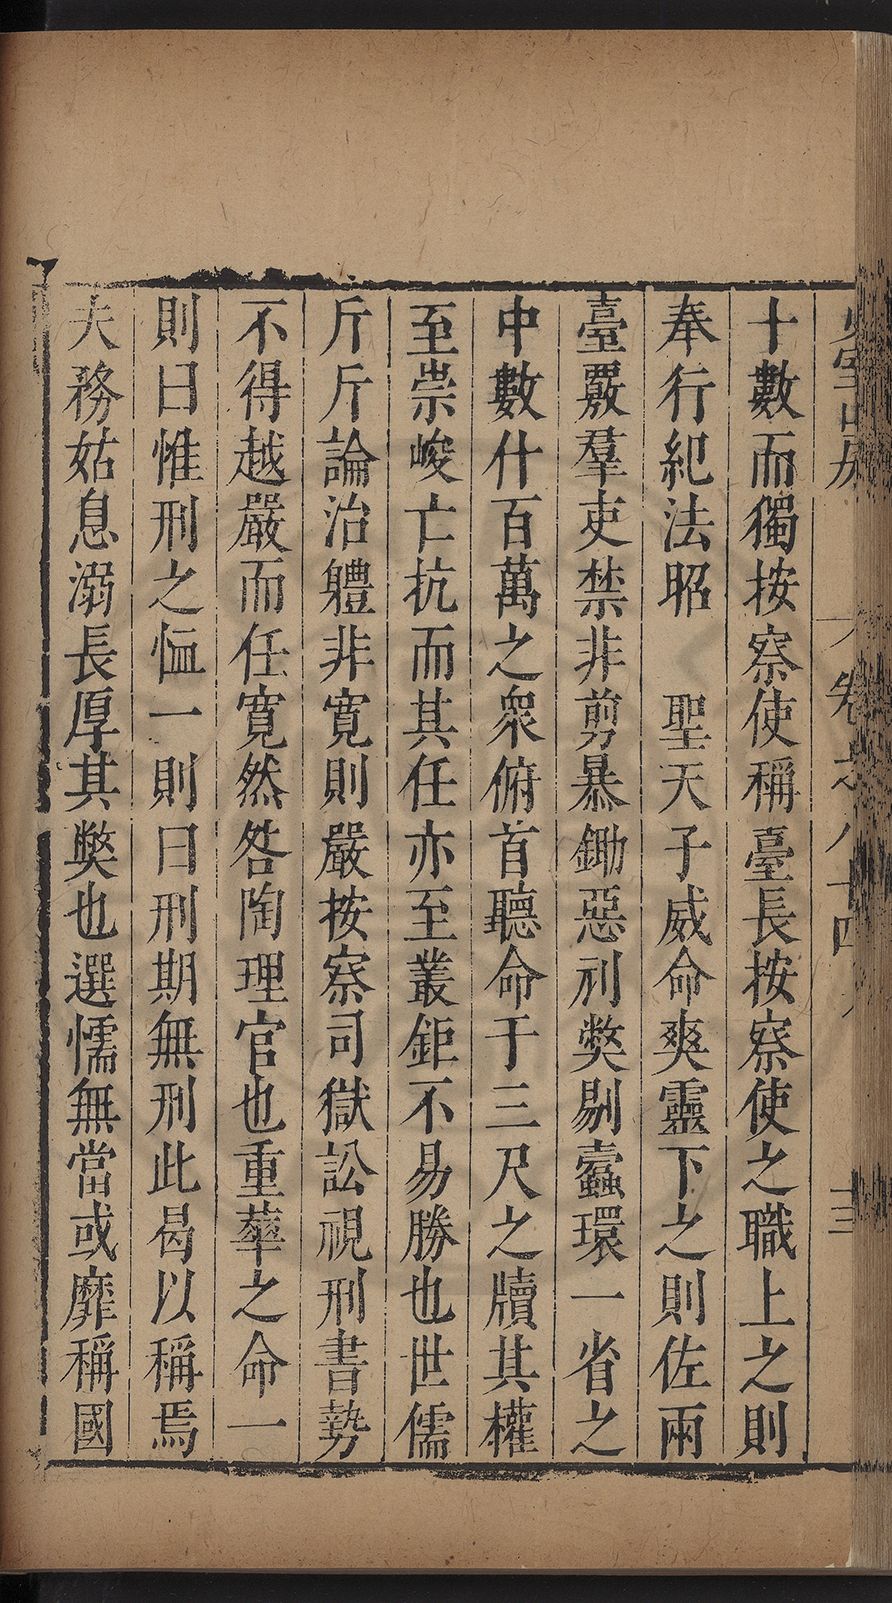 卷之八十四 三
十數而獨按察使稱臺長按察使之職上之則
奉行紀法昭　聖天子威命爽靈下之則佐兩
臺覈羣吏禁非剪暴鋤惡刓弊剔蠹環一省之
中數什百萬之衆俯首聽命于三尺之牘其權
至崇峻亡抗而其任亦至叢鉅不易勝也世儒
斤斤論治體非寬則嚴按察司獄訟視刑書勢
不得越嚴而任寬然咎陶理官也重華之命一
則曰惟刑之恤一則曰刑期無刑此曷以稱焉
夫務姑息溺長厚其弊也選懦無當或靡稱國